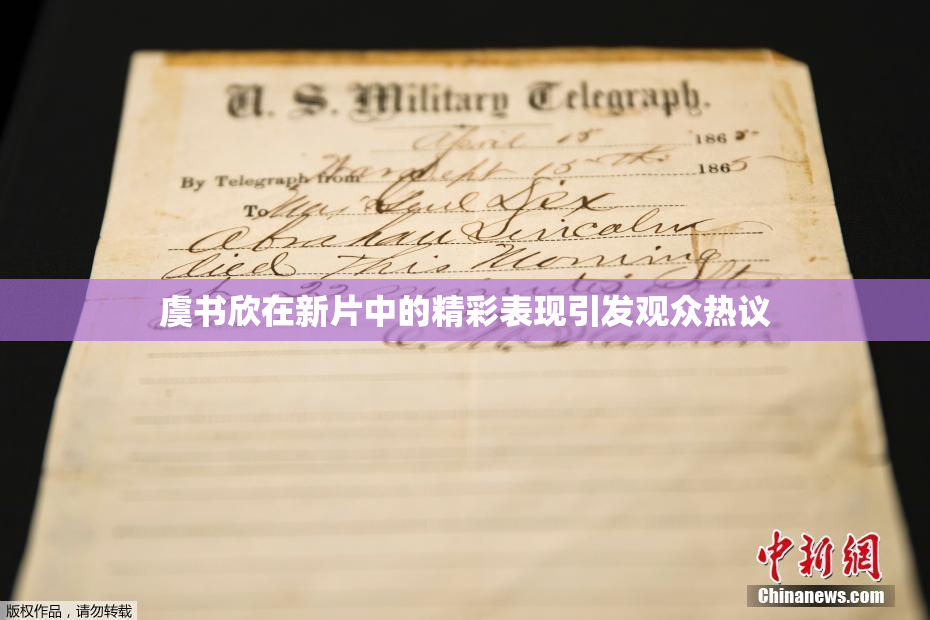 U. S. Military Telegraph.
April 15 1865
By Telegraph from War Dept 15th 1865
To Maj Genl Dix
Abraham Lincoln
died This Morning
at 22 minutes after
虞书欣在新片中的精彩表现引发观众热议
E. M. Stanton
中新网
Chinanews.com
版权作品，请勿转载